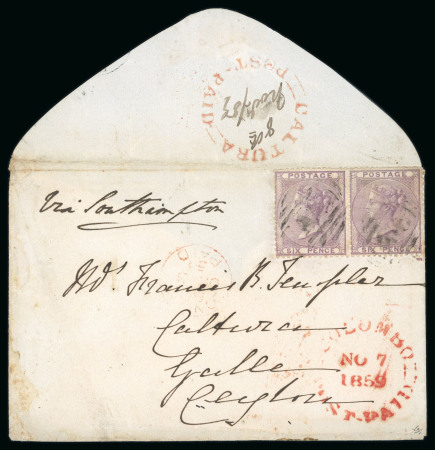 CALTURA
POST-PAID
POSTAGE POSTAGE
SIX PENCE SIX PENCE
Via Southampton
Mrs Francis B. Templer
Caltura
Galle
Ceylon
COLOMBO
NO 7
1859
POST-PAID
PAID